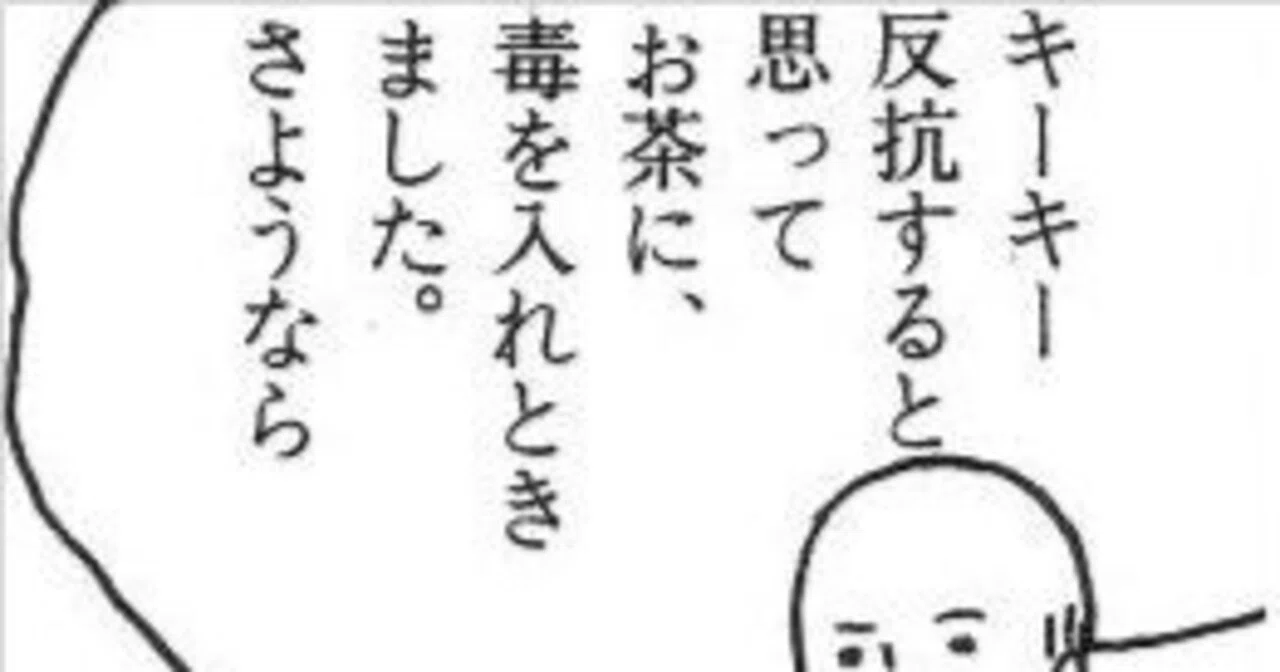 キーキー
反抗すると
思って
お茶に、
毒を入れとき
ました。
さようなら